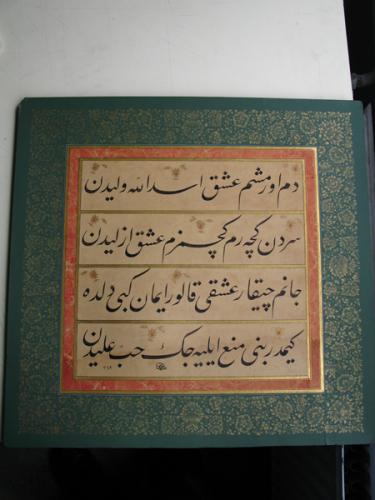 دم اورمشم عشق اسد الله وليدن
سردن كچه رم كچمزم عشق ازليدن
جانم چيقار عشقى قالور ايمان كبى دلده
كيمدر بنى منع ايليه جك حب عليدن